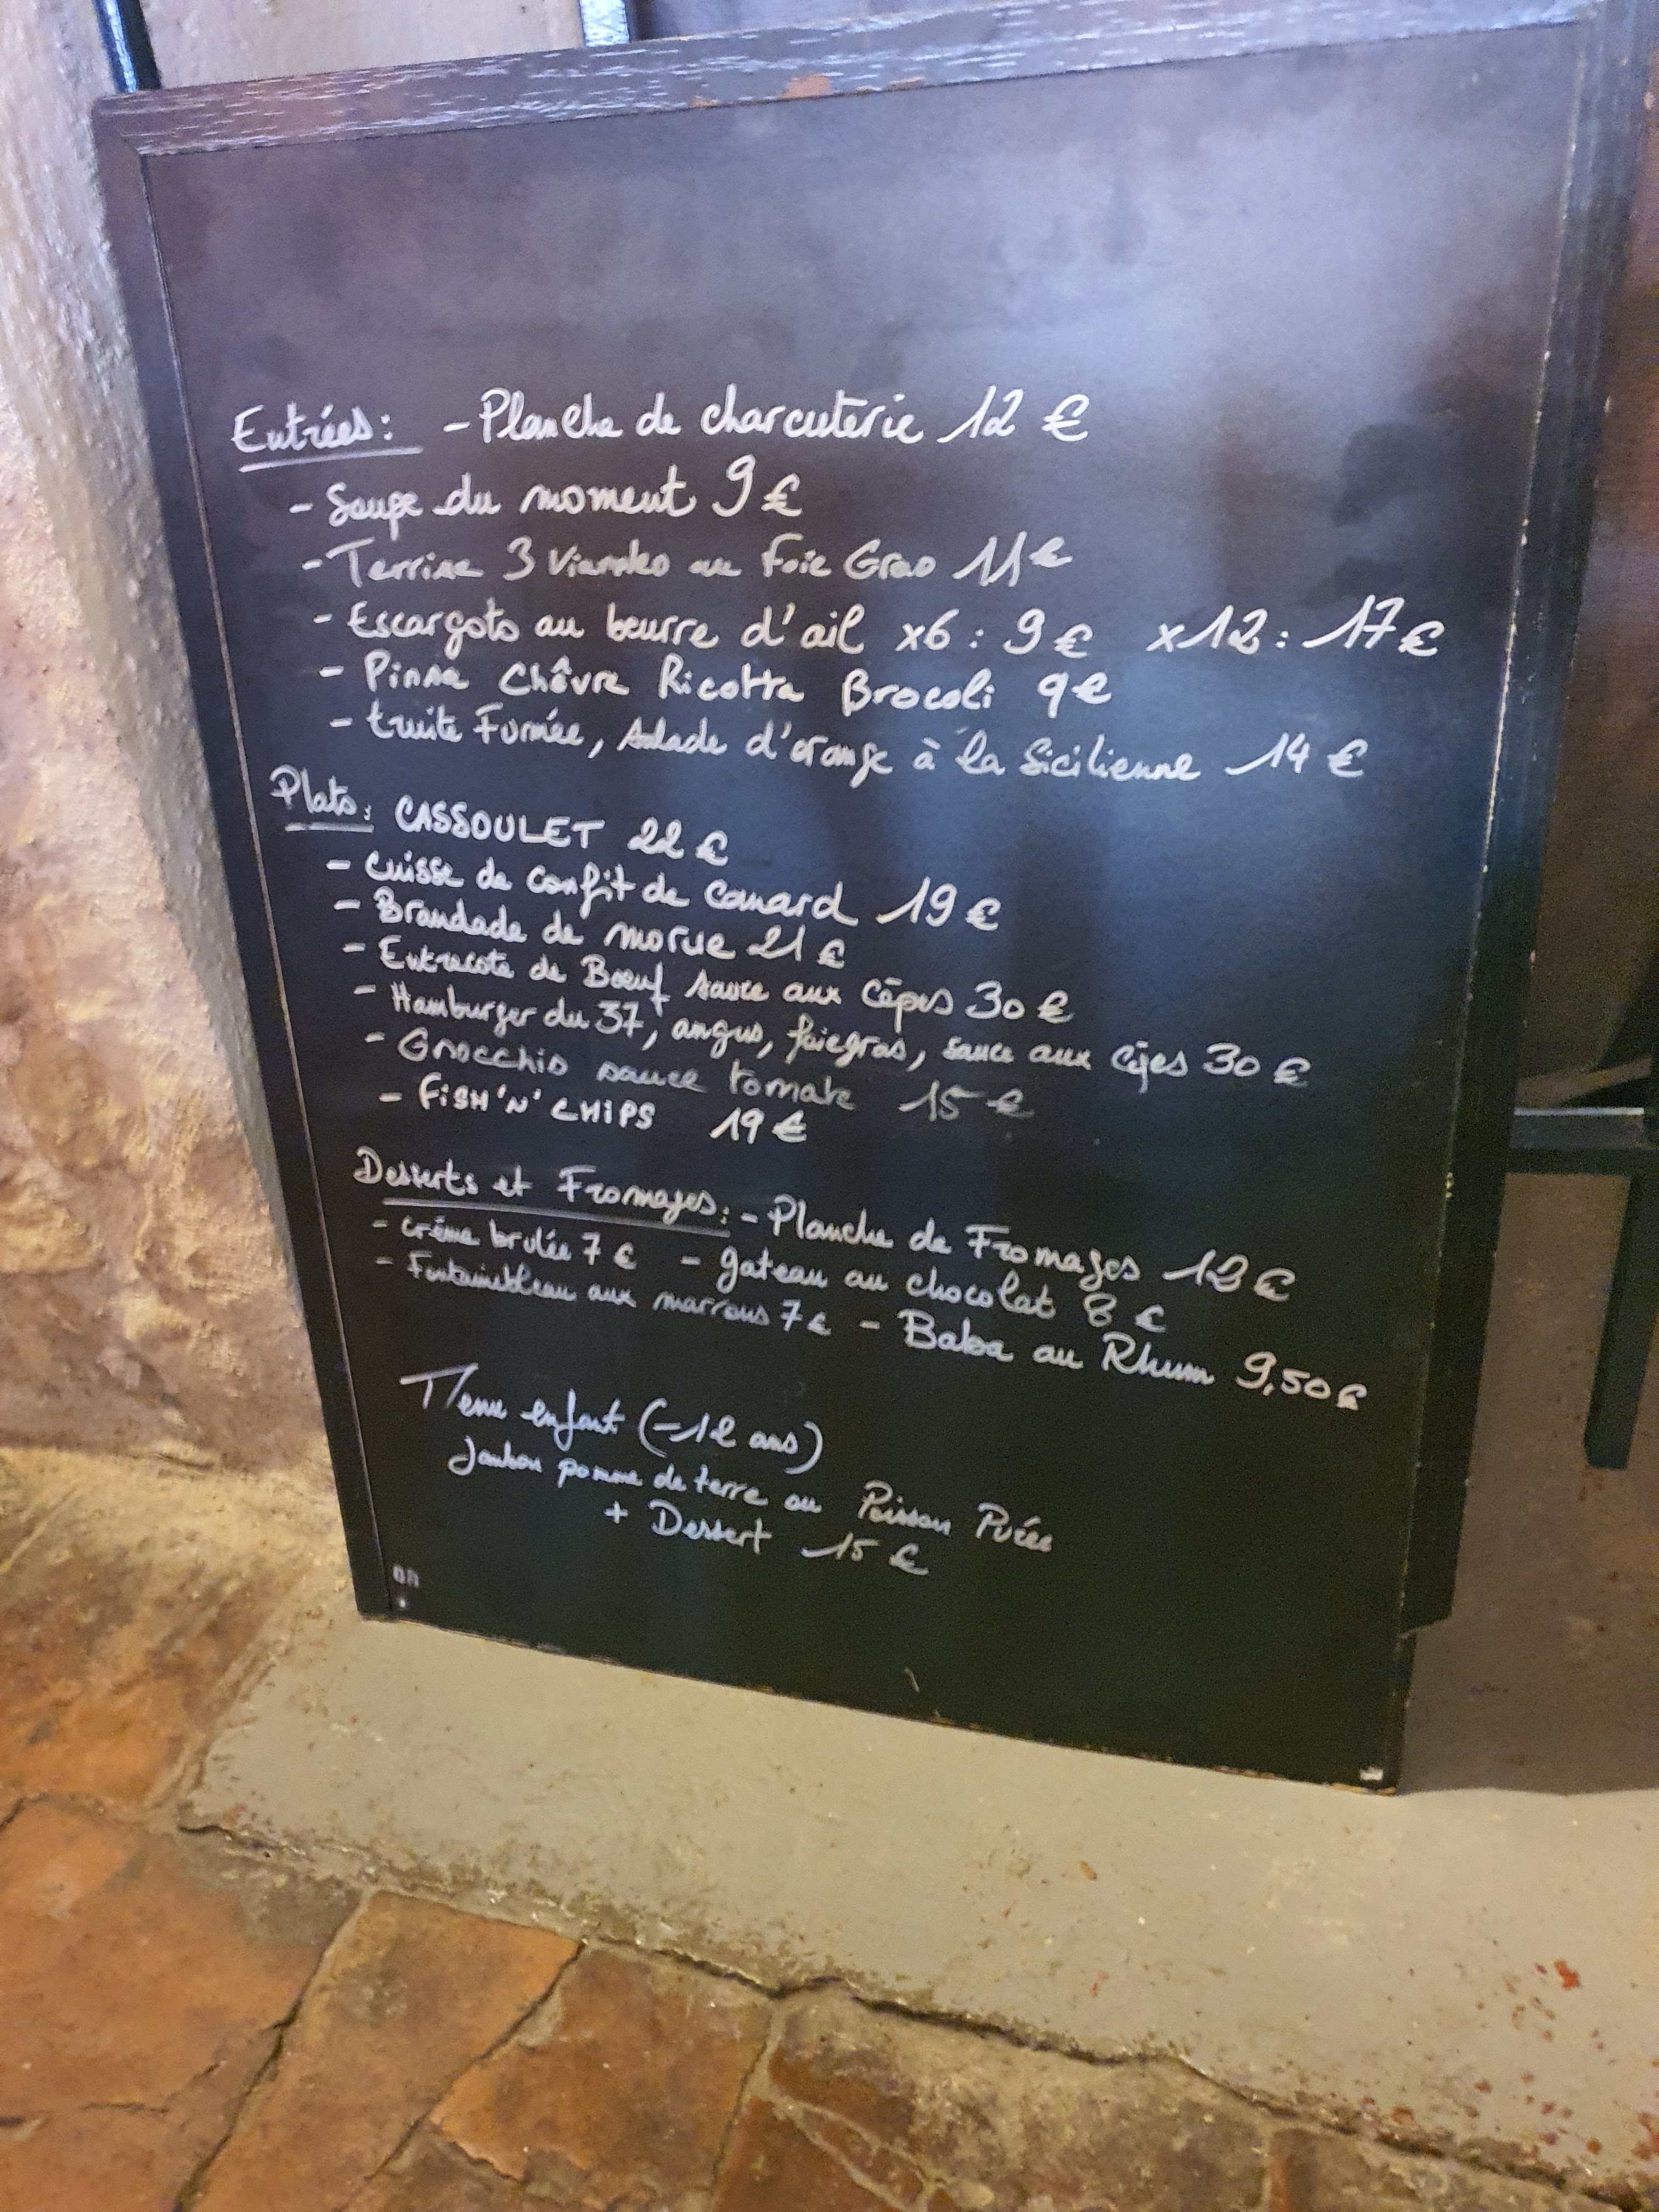 Entrées: - Planche de charcuterie 12 €
- Soupe du moment 9 €
- Terrine 3 Viandes au Foie Gras 11 €
- Escargots au beurre d'ail x6 : 9 € x12 : 17 €
- Pinsa Chèvre Ricotta Brocoli 9 €
- truite Fumée, salade d'orange à la Sicilienne 14 €
Plats: CASSOULET 22 €
- Cuisse de Confit de Canard 19 €
- Brandade de morue 21 €
- Entrecote de Bœuf sauce aux Cèpes 30 €
- Hamburger du 37, angus, foiegras, sauce aux Cèpes 30 €
- Gnocchis sauce tomate 15 €
- FiSH 'N' CHiPS 19 €
Desserts et Fromages: - Planche de Fromages €
- crème brulée 7 € - gateau au chocolat 8 €
- Fontainebleau aux marrons 7 € - Baba au Rhum 9,50 €
Menu enfant (-12 ans)
Jambon pomme de terre ou Poisson Purée
+ Dessert 15 €